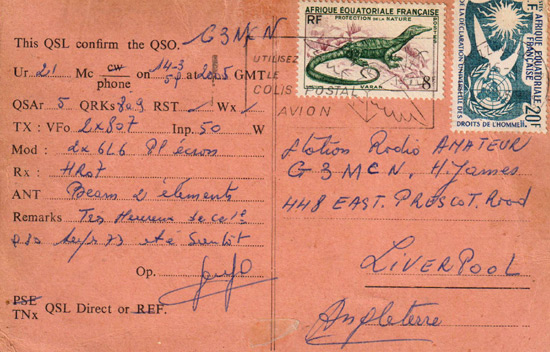 This QSL confirm the QSO. G3MCN
Ur 21 Mc cw phone on 14-3 59 at 2005 GMT
QSAr 5 QRKs 8 à 9 RST / Wx /
TX : VFo 2x807 Inp. 50 W
Mod : 2x6L6 Pl écran
Rx : HRO7
ANT Beam 2 éléments
Remarks Très Heureux de ce 1e
QSO 73 et à Bientôt
Op.
PSE TNx QSL Direct or REF.
AFRIQUE ÉQUATORIALE FRANÇAISE
RF PROTECTION DE LA NATURE
VARAN 8F
UTILISEZ
LE
COLIS POSTAL
AVION
AFRIQUE ÉQUATORIALE FRANÇAISE
DE LA DÉCLARATION UNIVERSELLE
DES DROITS DE L'HOMME
20F
Station Radio AMATEUR
G3MCN, H. James
448 EAST. PRESCOT. Road
LIVERPOOL
Angleterre